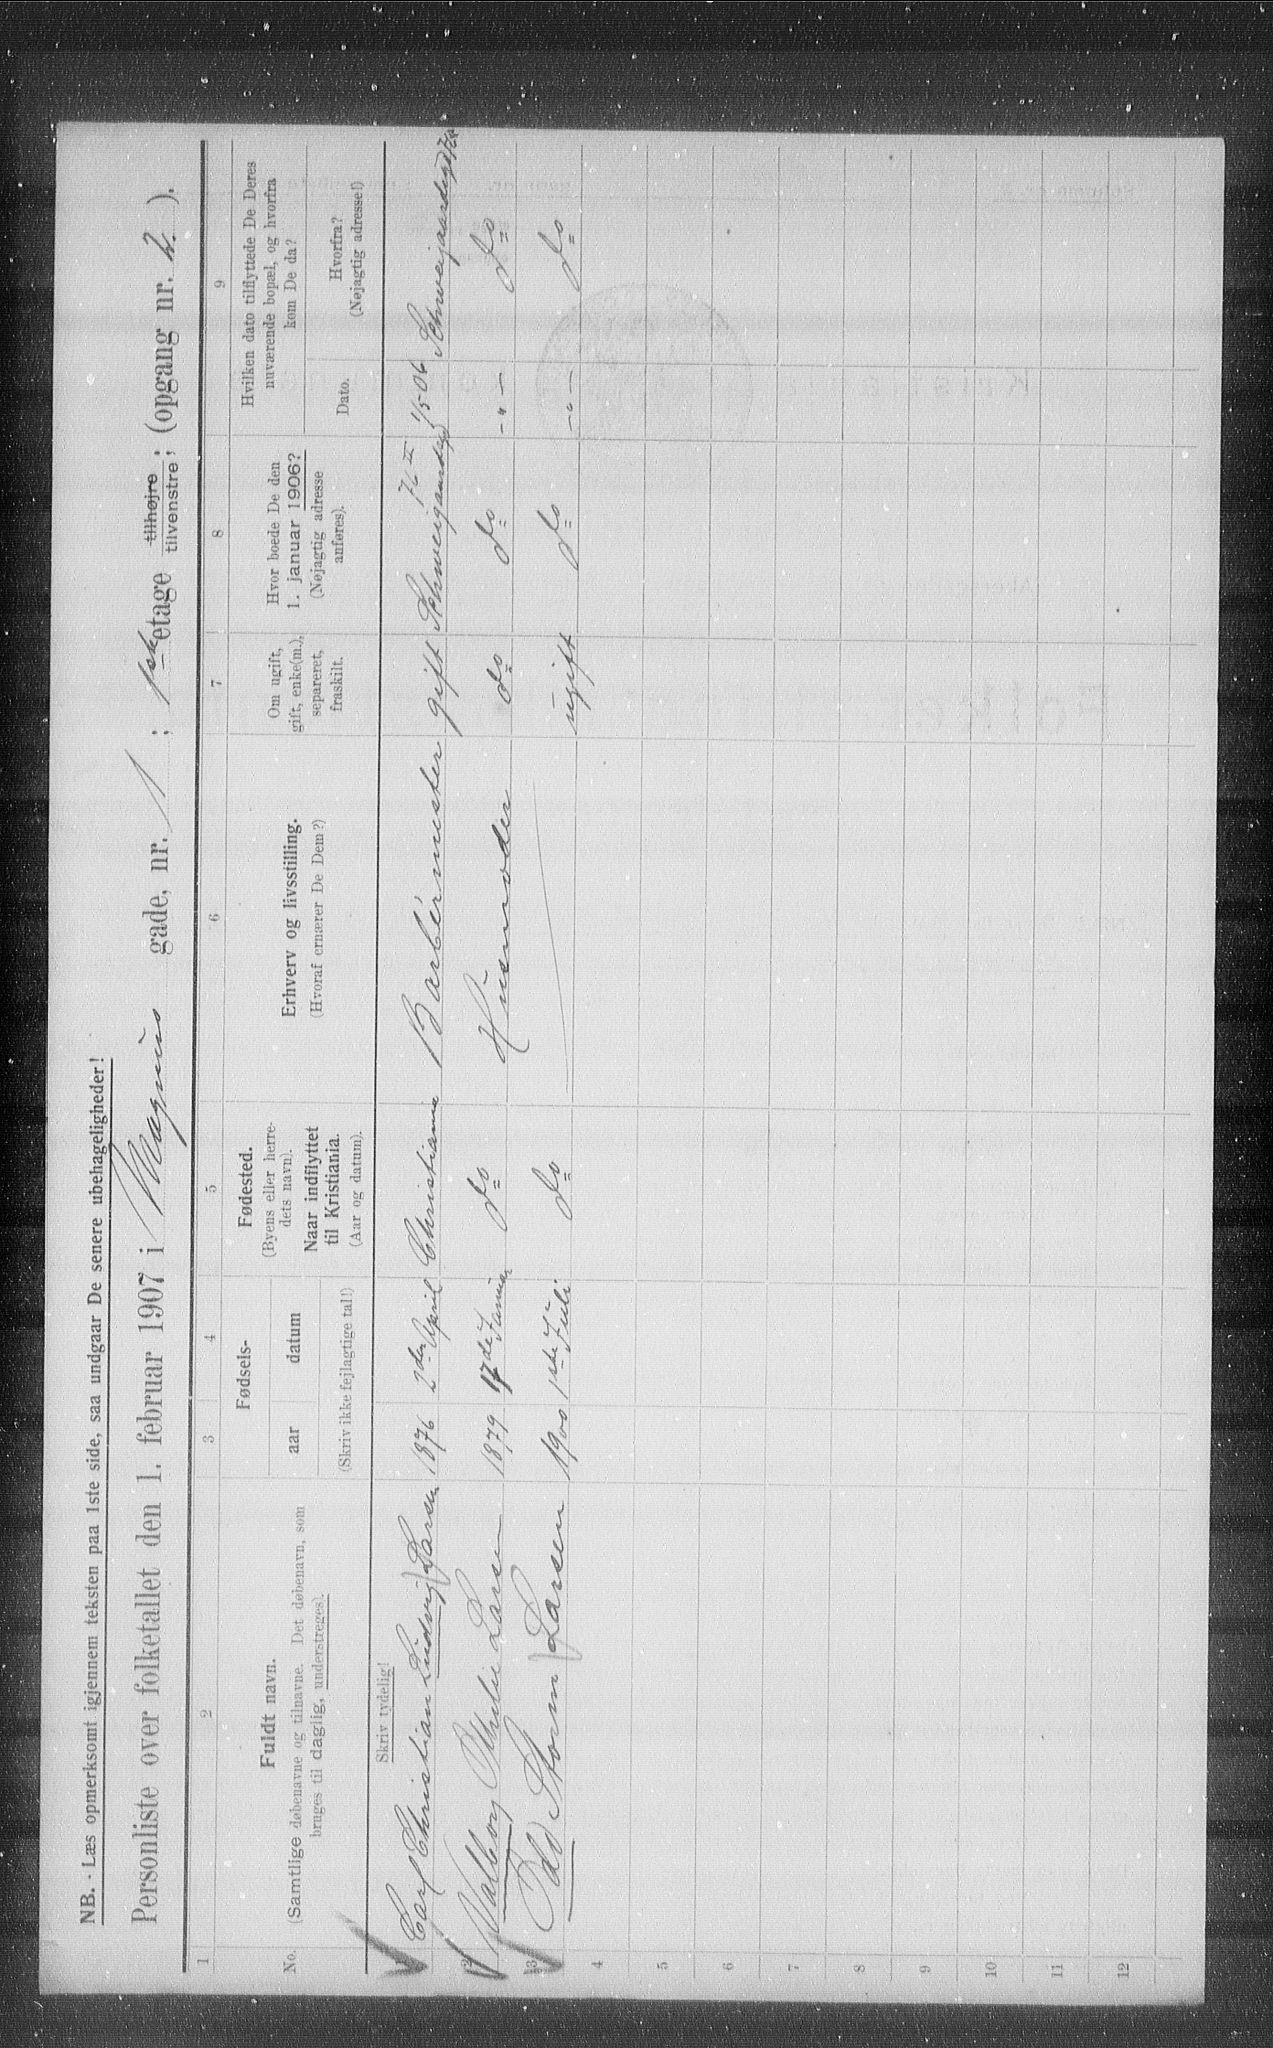 NB. - Læs opmerksomt igjennem teksten paa 1ste side, saa undgaar De senere ubehageligheder!
Personliste over folketallet den 1. februar 1907 i Magnus gade, nr. 1 ; 1ste etage tilhøjre tilvenstre; (opgang nr. 2. ).
1 2 3 4 5 6 7 8 9
No.
Fuldt navn.
(Samtlige døbenavne og tilnavne. Det døbenavn, som
bruges til daglig, understreges).
Fødsels-
aar datum
(Skriv ikke fejlagtige tal!)
Fødested.
(Byens eller herre-
dets navn).
Naar indflyttet
til Kristiania.
(Aar og datum).
Erhverv og livsstilling.
(Hvoraf ernærer De Dem?)
Om ugift,
gift, enke(m.),
separeret,
fraskilt.
Hvor boede De den
1. januar 1906?
(Nøjagtig adresse
anføres).
Hvilken dato tilflyttede De Deres
nuværende bopæl, og hvorfra
kom De da?
Dato.
Hvorfra?
(Nøjagtig adresse!)
Skriv tydelig!
1 Carl Christian Ludvig Larsen 1876 2den April Christiania Barbermester gift Schweigaardsgd 76 II 1/5-06
2 Valborg Larsen 1879 17de Januar do Husmoder do do -"- do
3 Odd Storm Larsen 1900 1ste Juli do ugift do -"- do
4
5
6
7
8
9
10
11
12